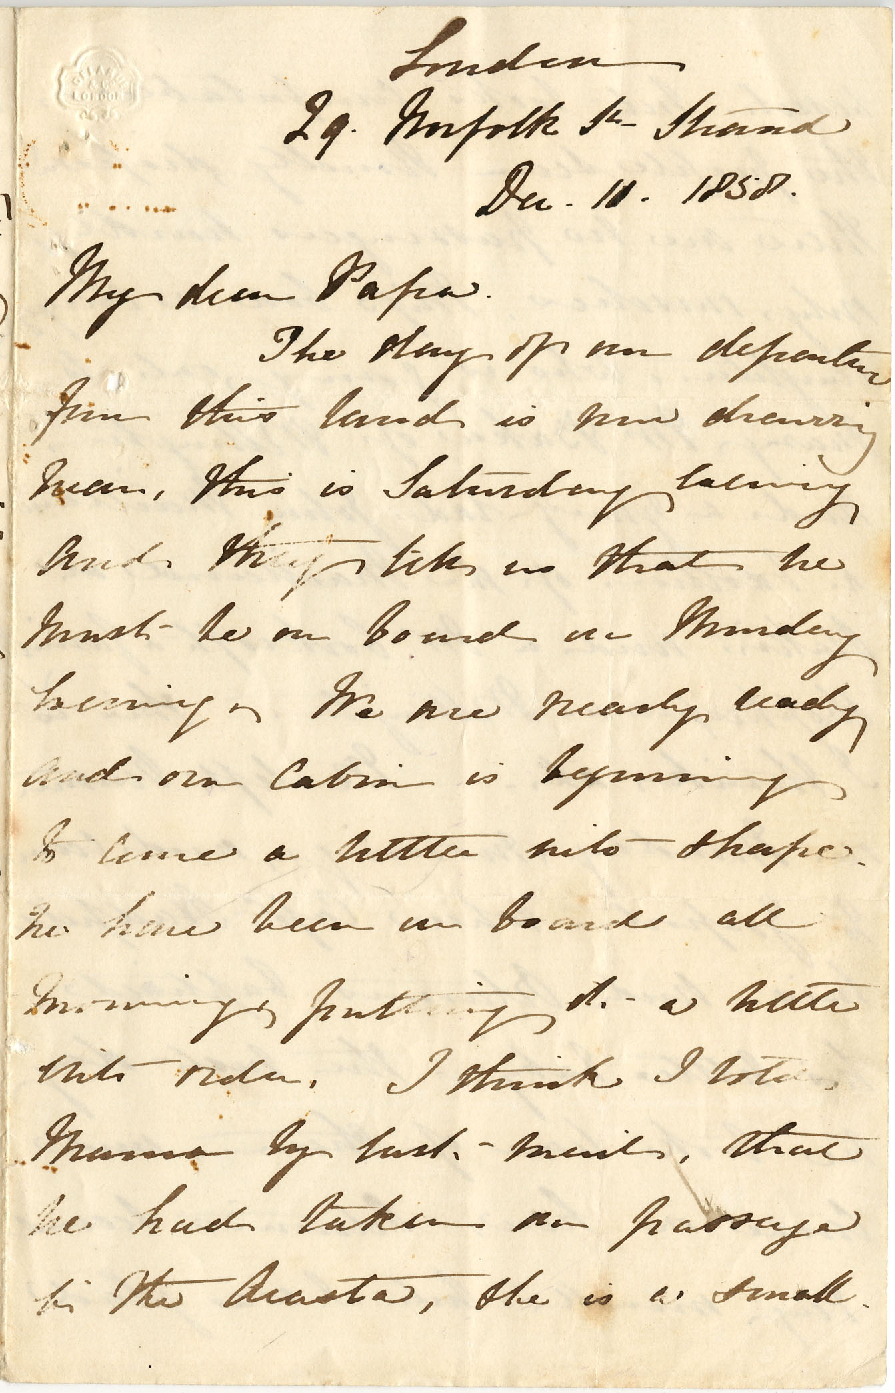 London
29. Norfolk St- Strand
Dec. 11. 1858.
My dear Papa.
The day of our departure
from this land is now drawing
near, this is Saturday evening
and they tell us that we
must be on board on Monday
evening, We are nearly ready
and our Cabin is beginning
to come a little into shape.
we have been on board all
morning, putting it a little
into order. I think I told
Mama by last mail, that
we had taken our passage
in the Acasta, she is a small